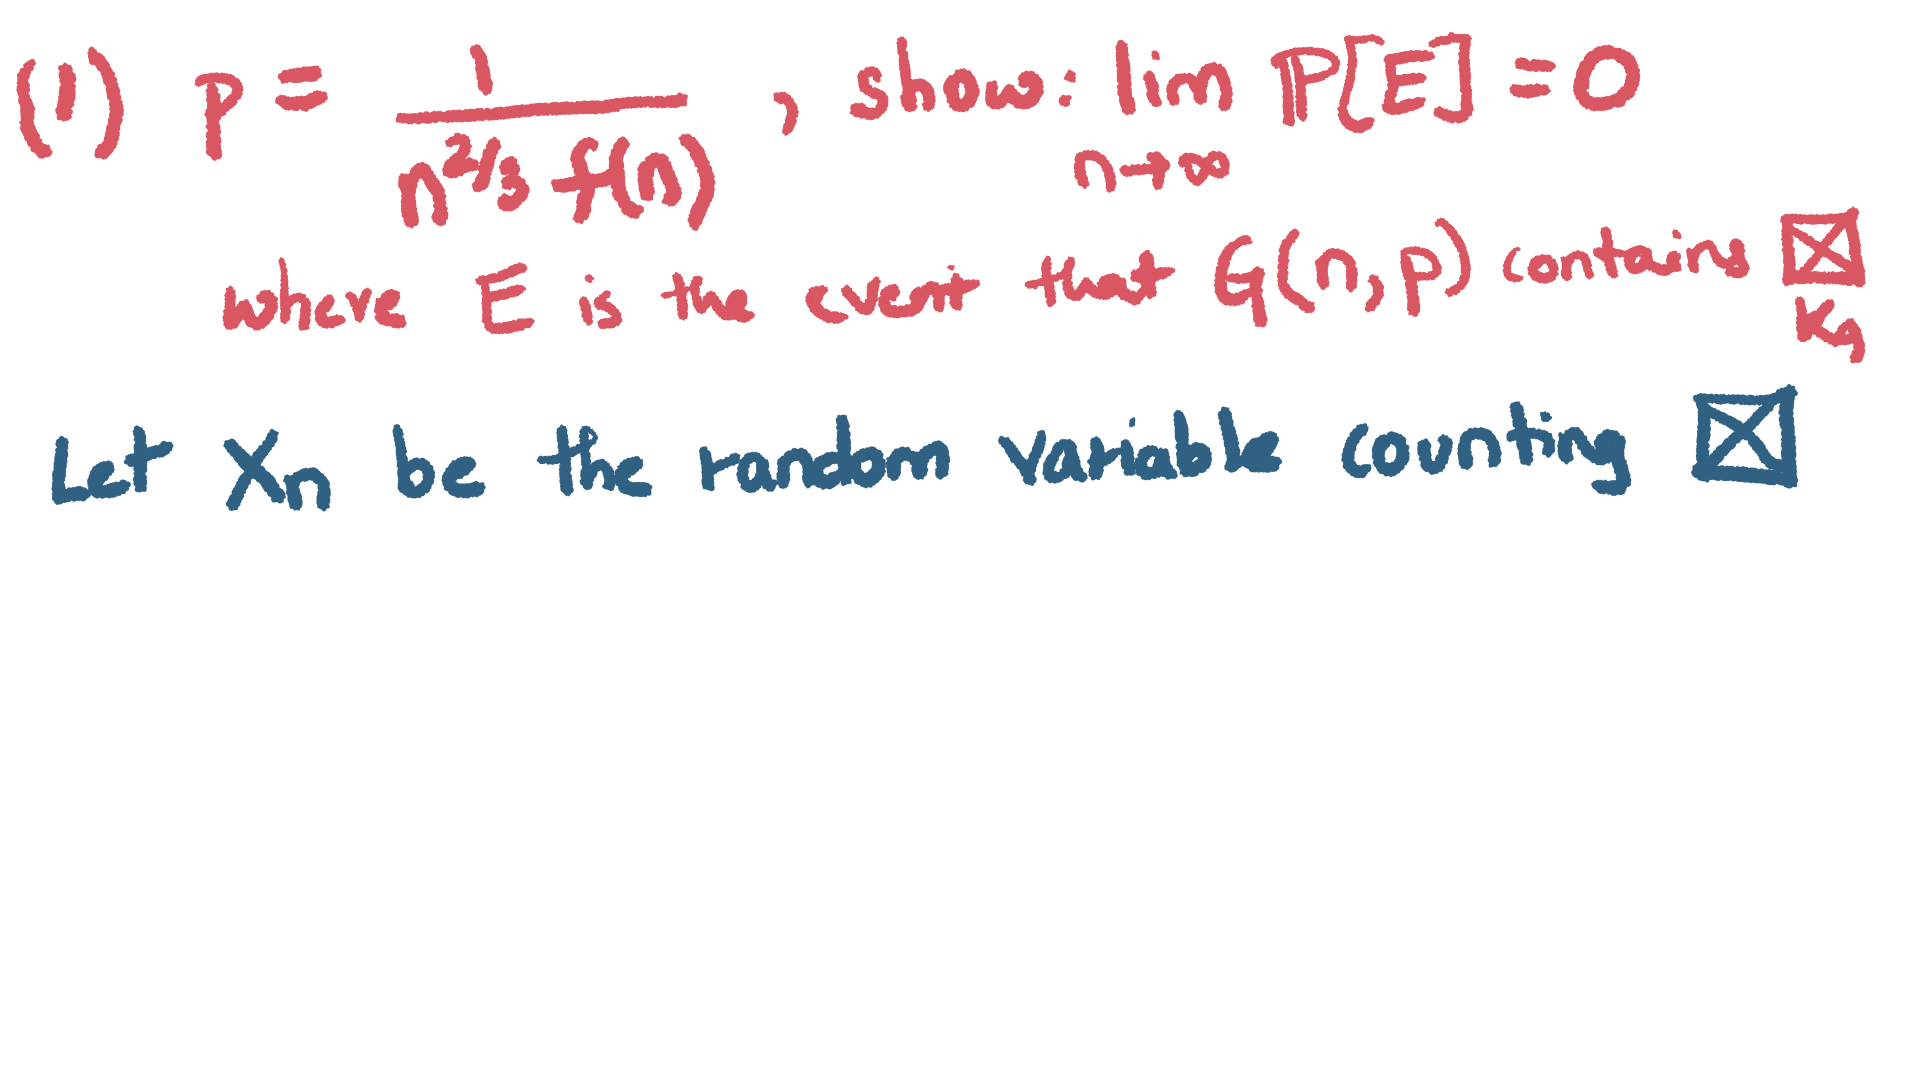 (1) p = 1/(n^{2/3} f(n)), show: lim_{n→∞} P[E] = 0
where E is the event that G(n,p) contains K4
Let Xn be the random variable counting